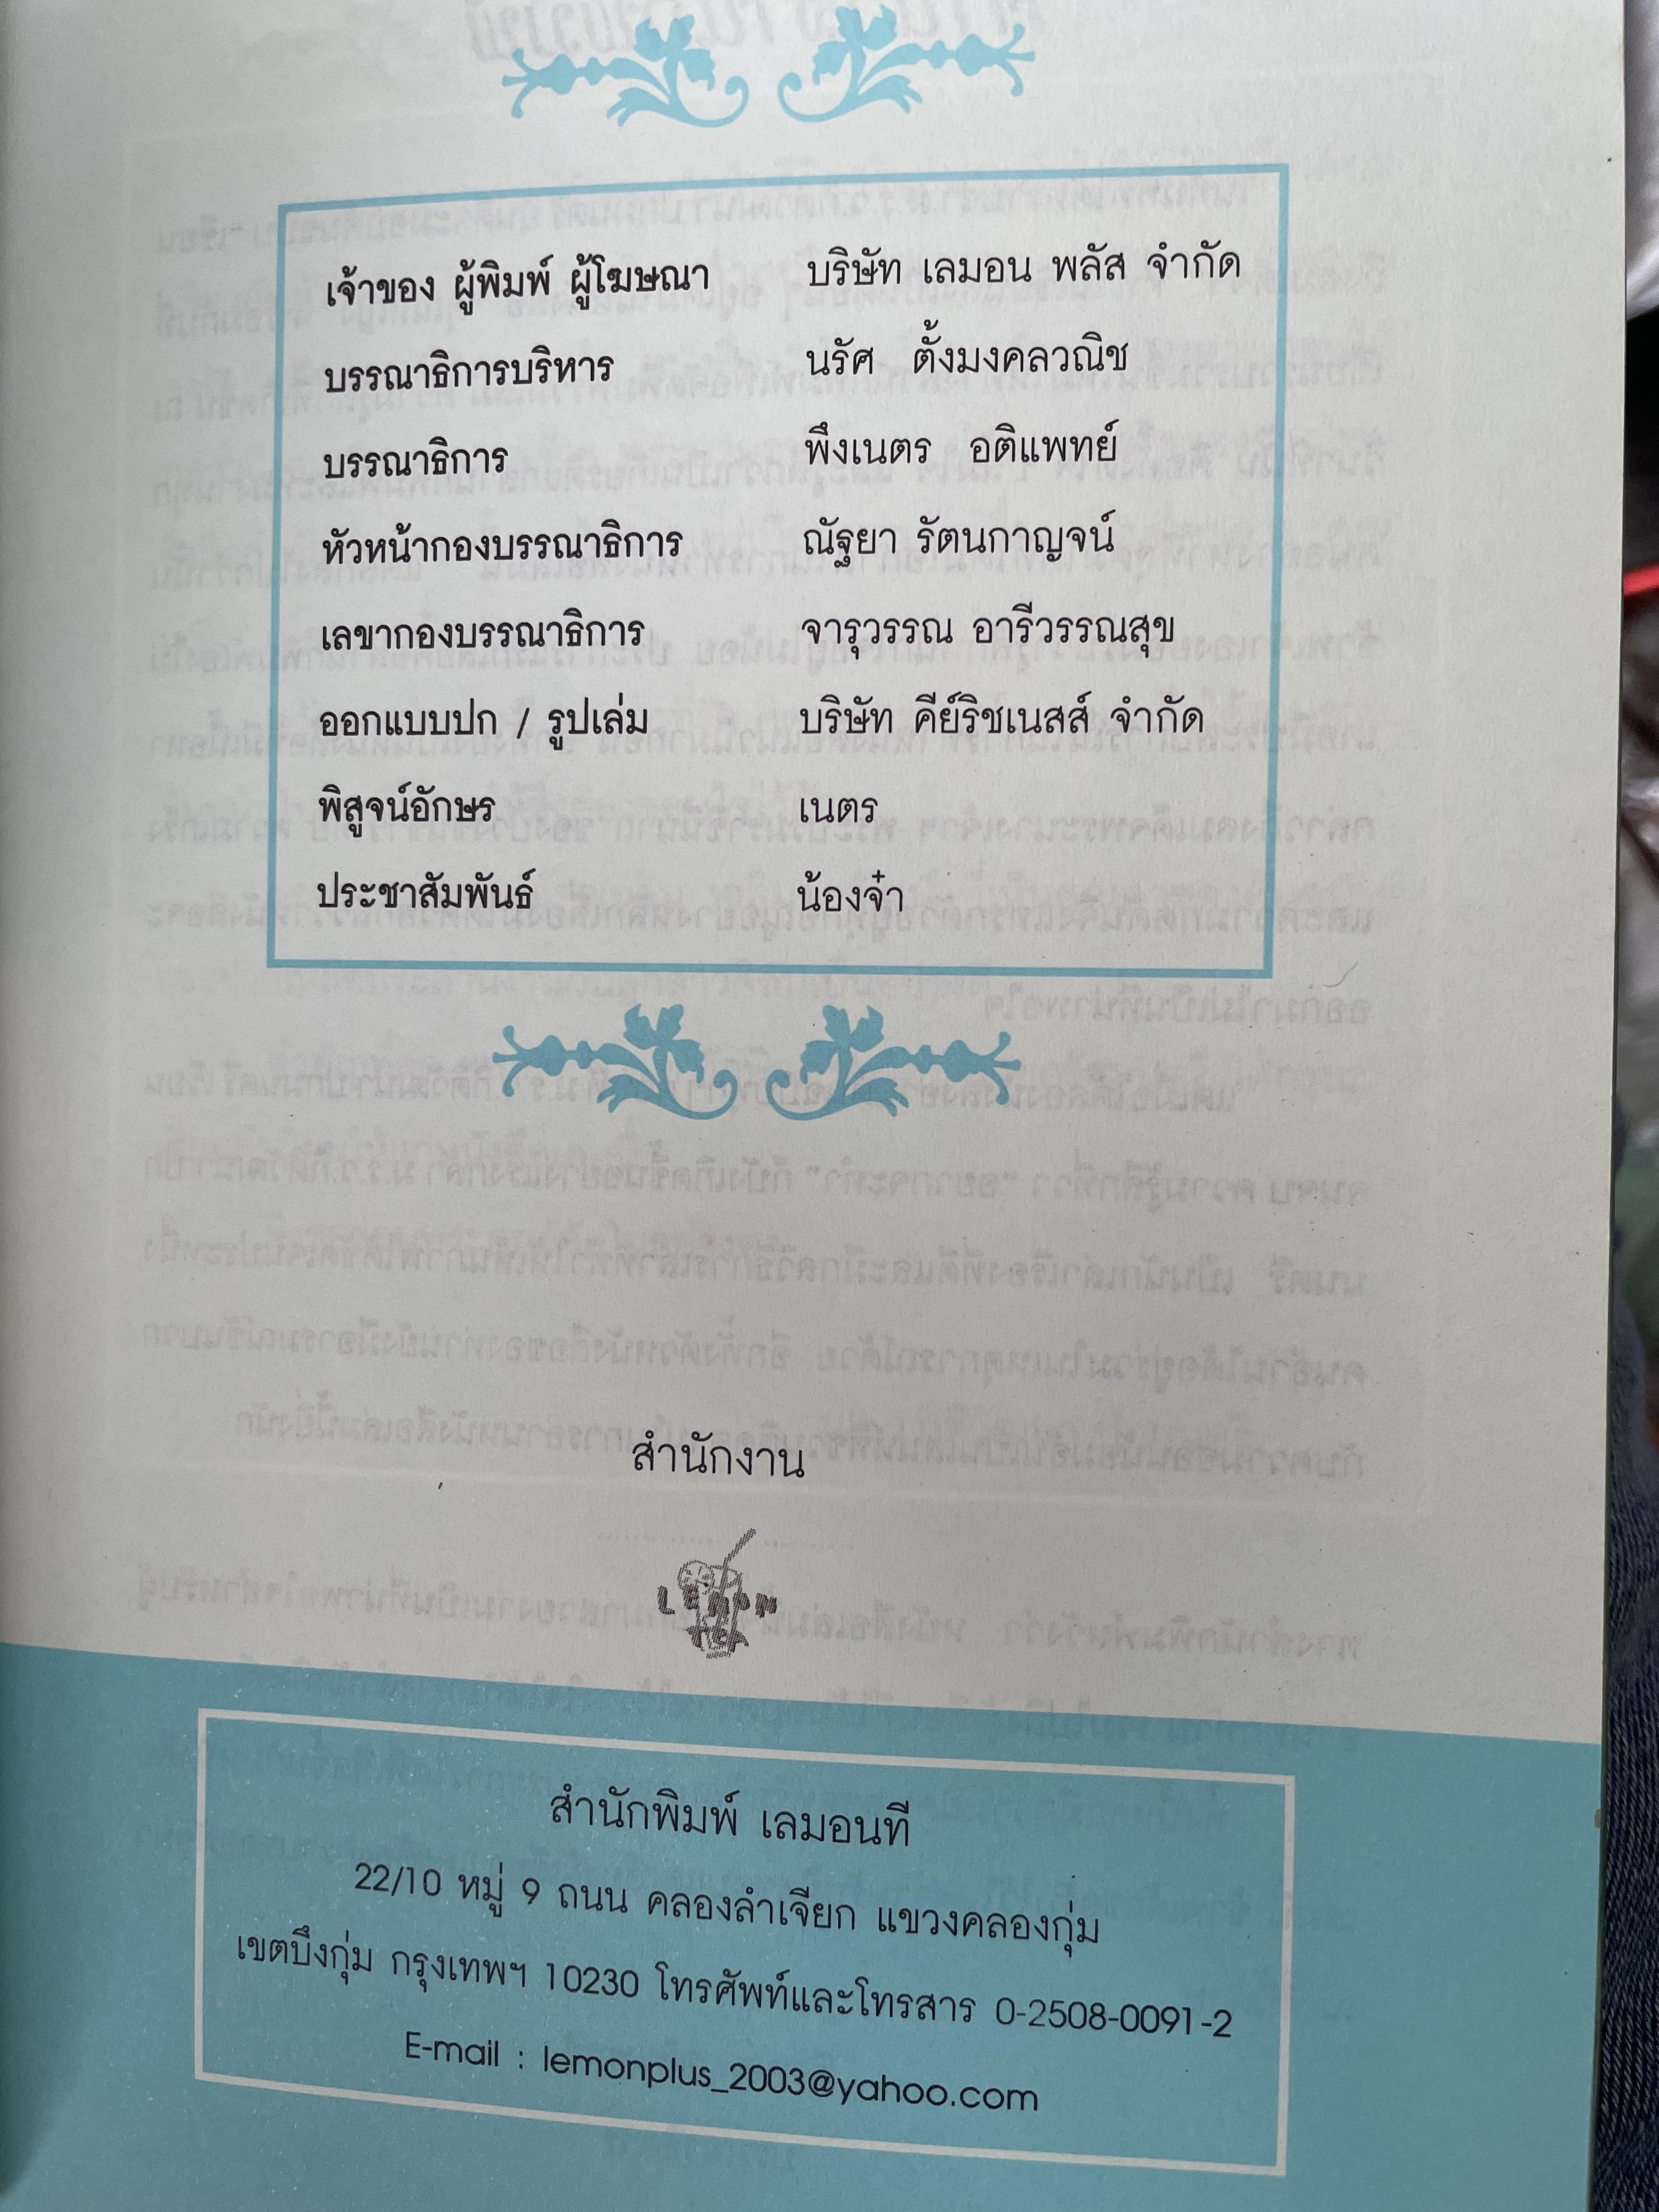 เจ้าของ ผู้พิมพ์ ผู้โฆษณา บริษัท เลมอน พลัส จำกัด
บรรณาธิการบริหาร นรัศ ตั้งมงคลวณิช
บรรณาธิการ พึงเนตร อติแพทย์
หัวหน้ากองบรรณาธิการ ณัฐยา รัตนกาญจน์
เลขากองบรรณาธิการ จารุวรรณ อารีวรรณสุข
ออกแบบปก / รูปเล่ม บริษัท คีย์ริชเนสส์ จำกัด
พิสูจน์อักษร เนตร
ประชาสัมพันธ์ น้องจ๋า
สำนักงาน
LEMON
TEA
สำนักพิมพ์ เลมอนที
22/10 หมู่ 9 ถนน คลองลำเจียก แขวงคลองกุ่ม
เขตบึงกุ่ม กรุงเทพฯ 10230 โทรศัพท์และโทรสาร 0-2508-0091-2
E-mail : lemonplus_2003@yahoo.com